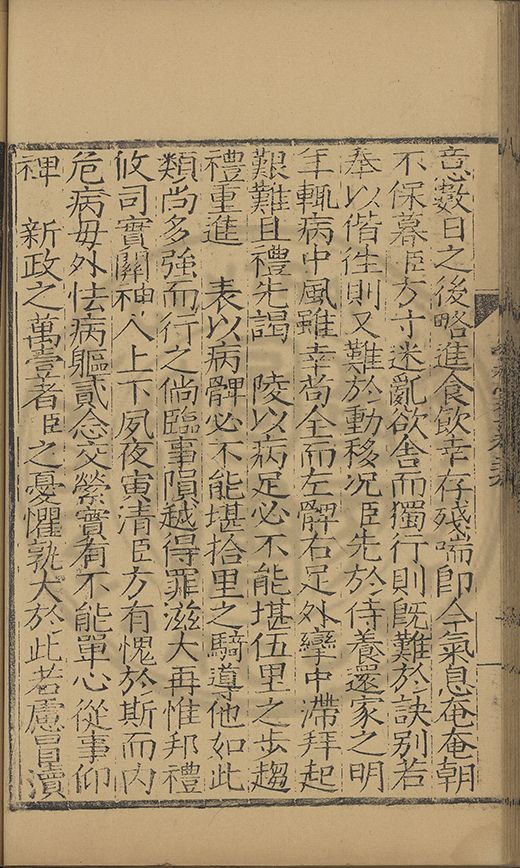 意數日之後略進食飲幸存殘喘卽今氣息奄奄朝
不保暮臣方寸迷亂欲舍而獨行則旣難於訣別若
奉以偕徃則又難於動移况臣先於侍養還家之明
年輒病中風雖幸尚全而左髀右足外攣中滯拜起
艱難且禮先謁　陵以病足必不能堪伍里之步趨
禮重進　表以病髀必不能堪拾里之騎導他如此
類尚多強而行之倘臨事隕越得罪滋大再惟邦禮
攸司實關神人上下夙夜寅清臣方有愧於斯而内
危病毋外怯病軀貳念交縈實有不能單心從事仰
裨　新政之萬壹者臣之憂懼孰大於此若慮冒瀆